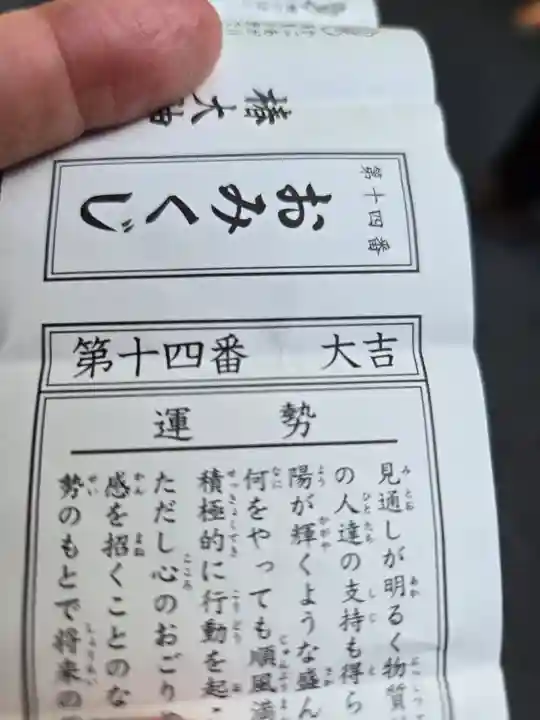 椿大
第十四番
おみくじ
第十四番 大吉
運勢
見通しが明るく物質
の人達の支持も得ら
陽が輝くような盛ん
何をやっても順風満
積極的に行動を起
ただし心のおごり
感を招くことのな
勢のもとで将来の